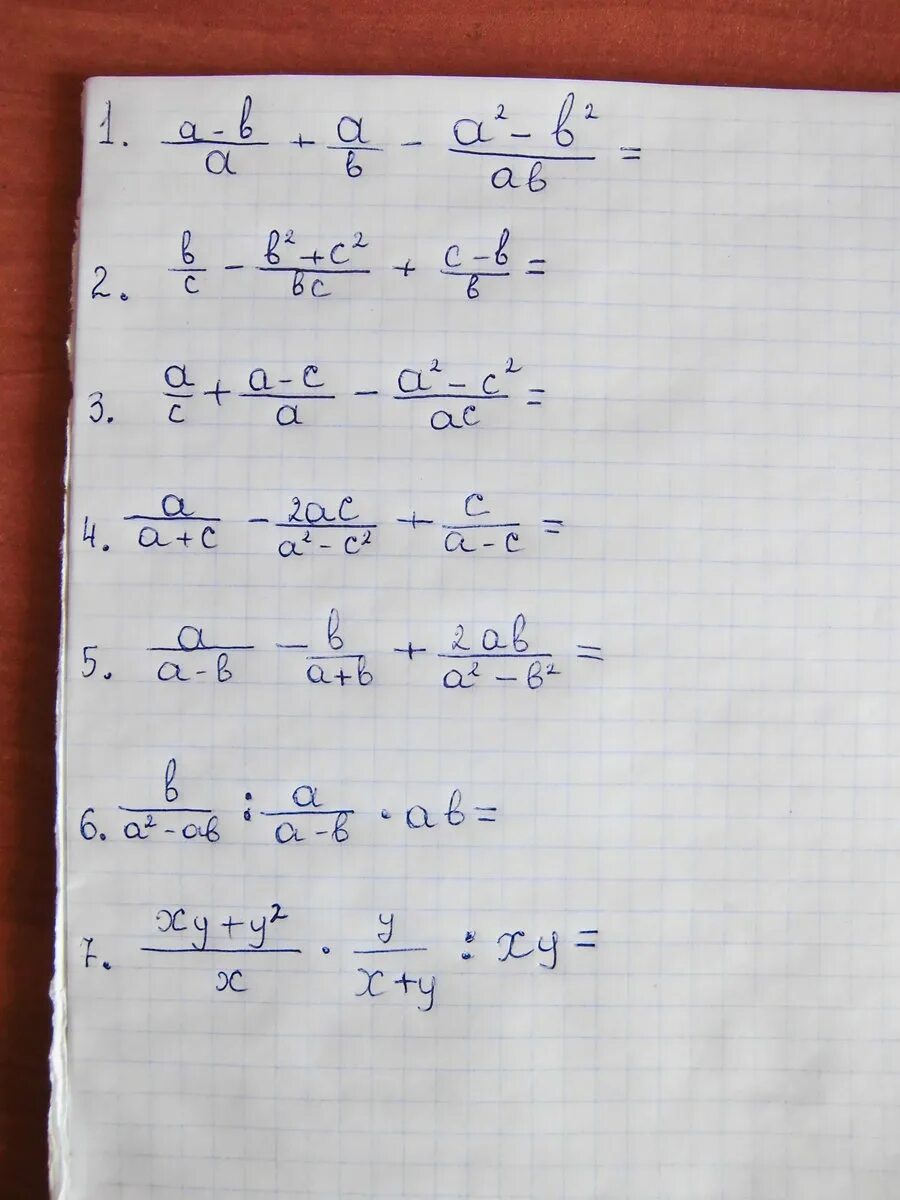 1. (a-b)/a + a/b - (a²-b²)/(ab) =
2. b/c - (b²+c²)/(bc) + (c-b)/b =
3. a/c + (a-c)/a - (a²-c²)/(ac) =
4. a/(a+c) - 2ac/(a²-c²) + c/(a-c) =
5. a/(a-b) - b/(a+b) + 2ab/(a²-b²) =
6. b/(a²-ab) : a/(a-b) · ab =
7. (xy+y²)/x · y/(x+y) : xy =